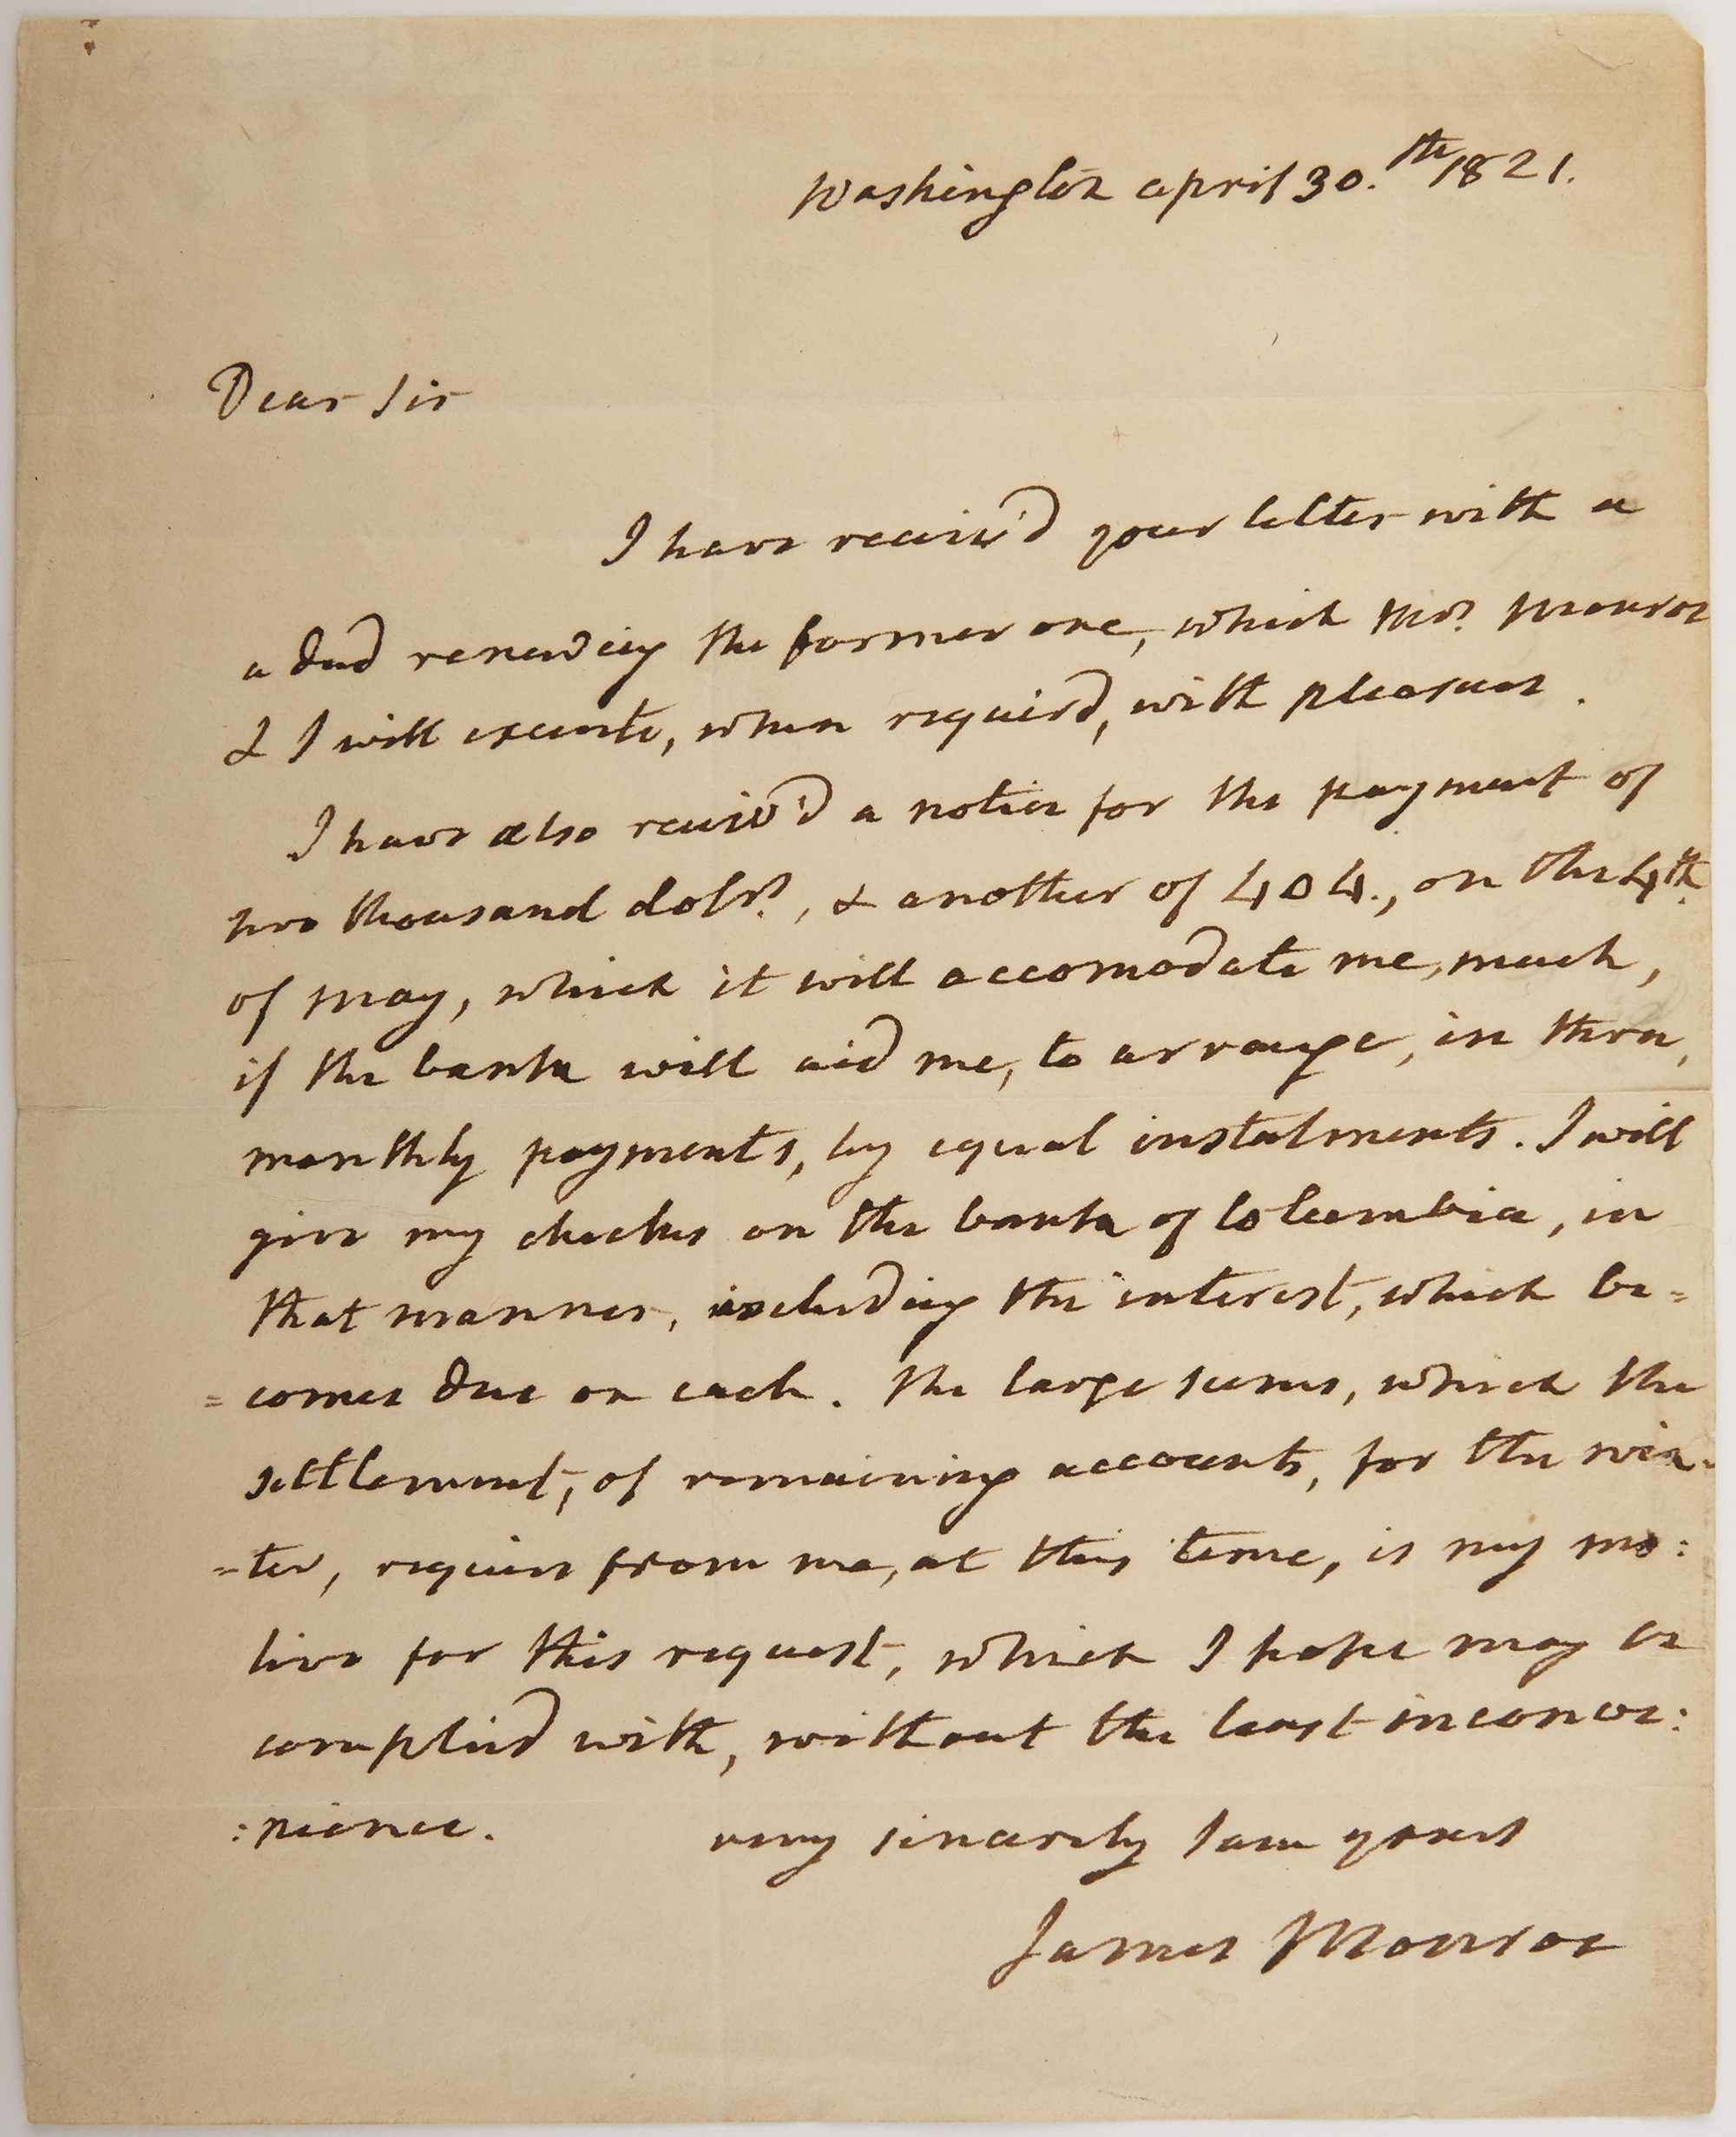 Washington april 30.th 1821.
Dear Sir
I have receiv'd your letter with a
a deed renewing the former one, which Mrs. Monroe
& I will execute, when requir'd, with pleasure.
I have also receiv'd a notice for the payment of
two thousand dolrs., & another of 404., on the 4th.
of may, which it will accomodate me, much,
if the bank will aid me, to arrange, in three,
monthly payments, by equal instalments. I will
give my checks on the bank of Columbia, in
that manner, including the interest, which be=
=comes due on each. The large sums, which the
settlement, of remaining accounts, for the win-
=ter, require from me, at this time, is my mo:
tive for this request, which I hope may be
complied with, without the least inconve:
:nience. very sincerely I am yours
James Monroe